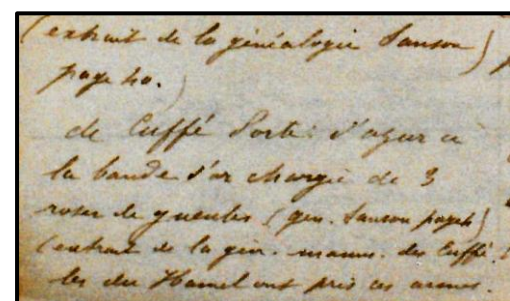 (extrait de la généalogie Sanson)
page 40.
de Cuffé Porte: d'azur a
la bande d'or chargée de 3
roses de gueules (gén. Sanson page)
(extrait de la gén. manus. des Cuffé
les du Hamel ont pris ces armes.